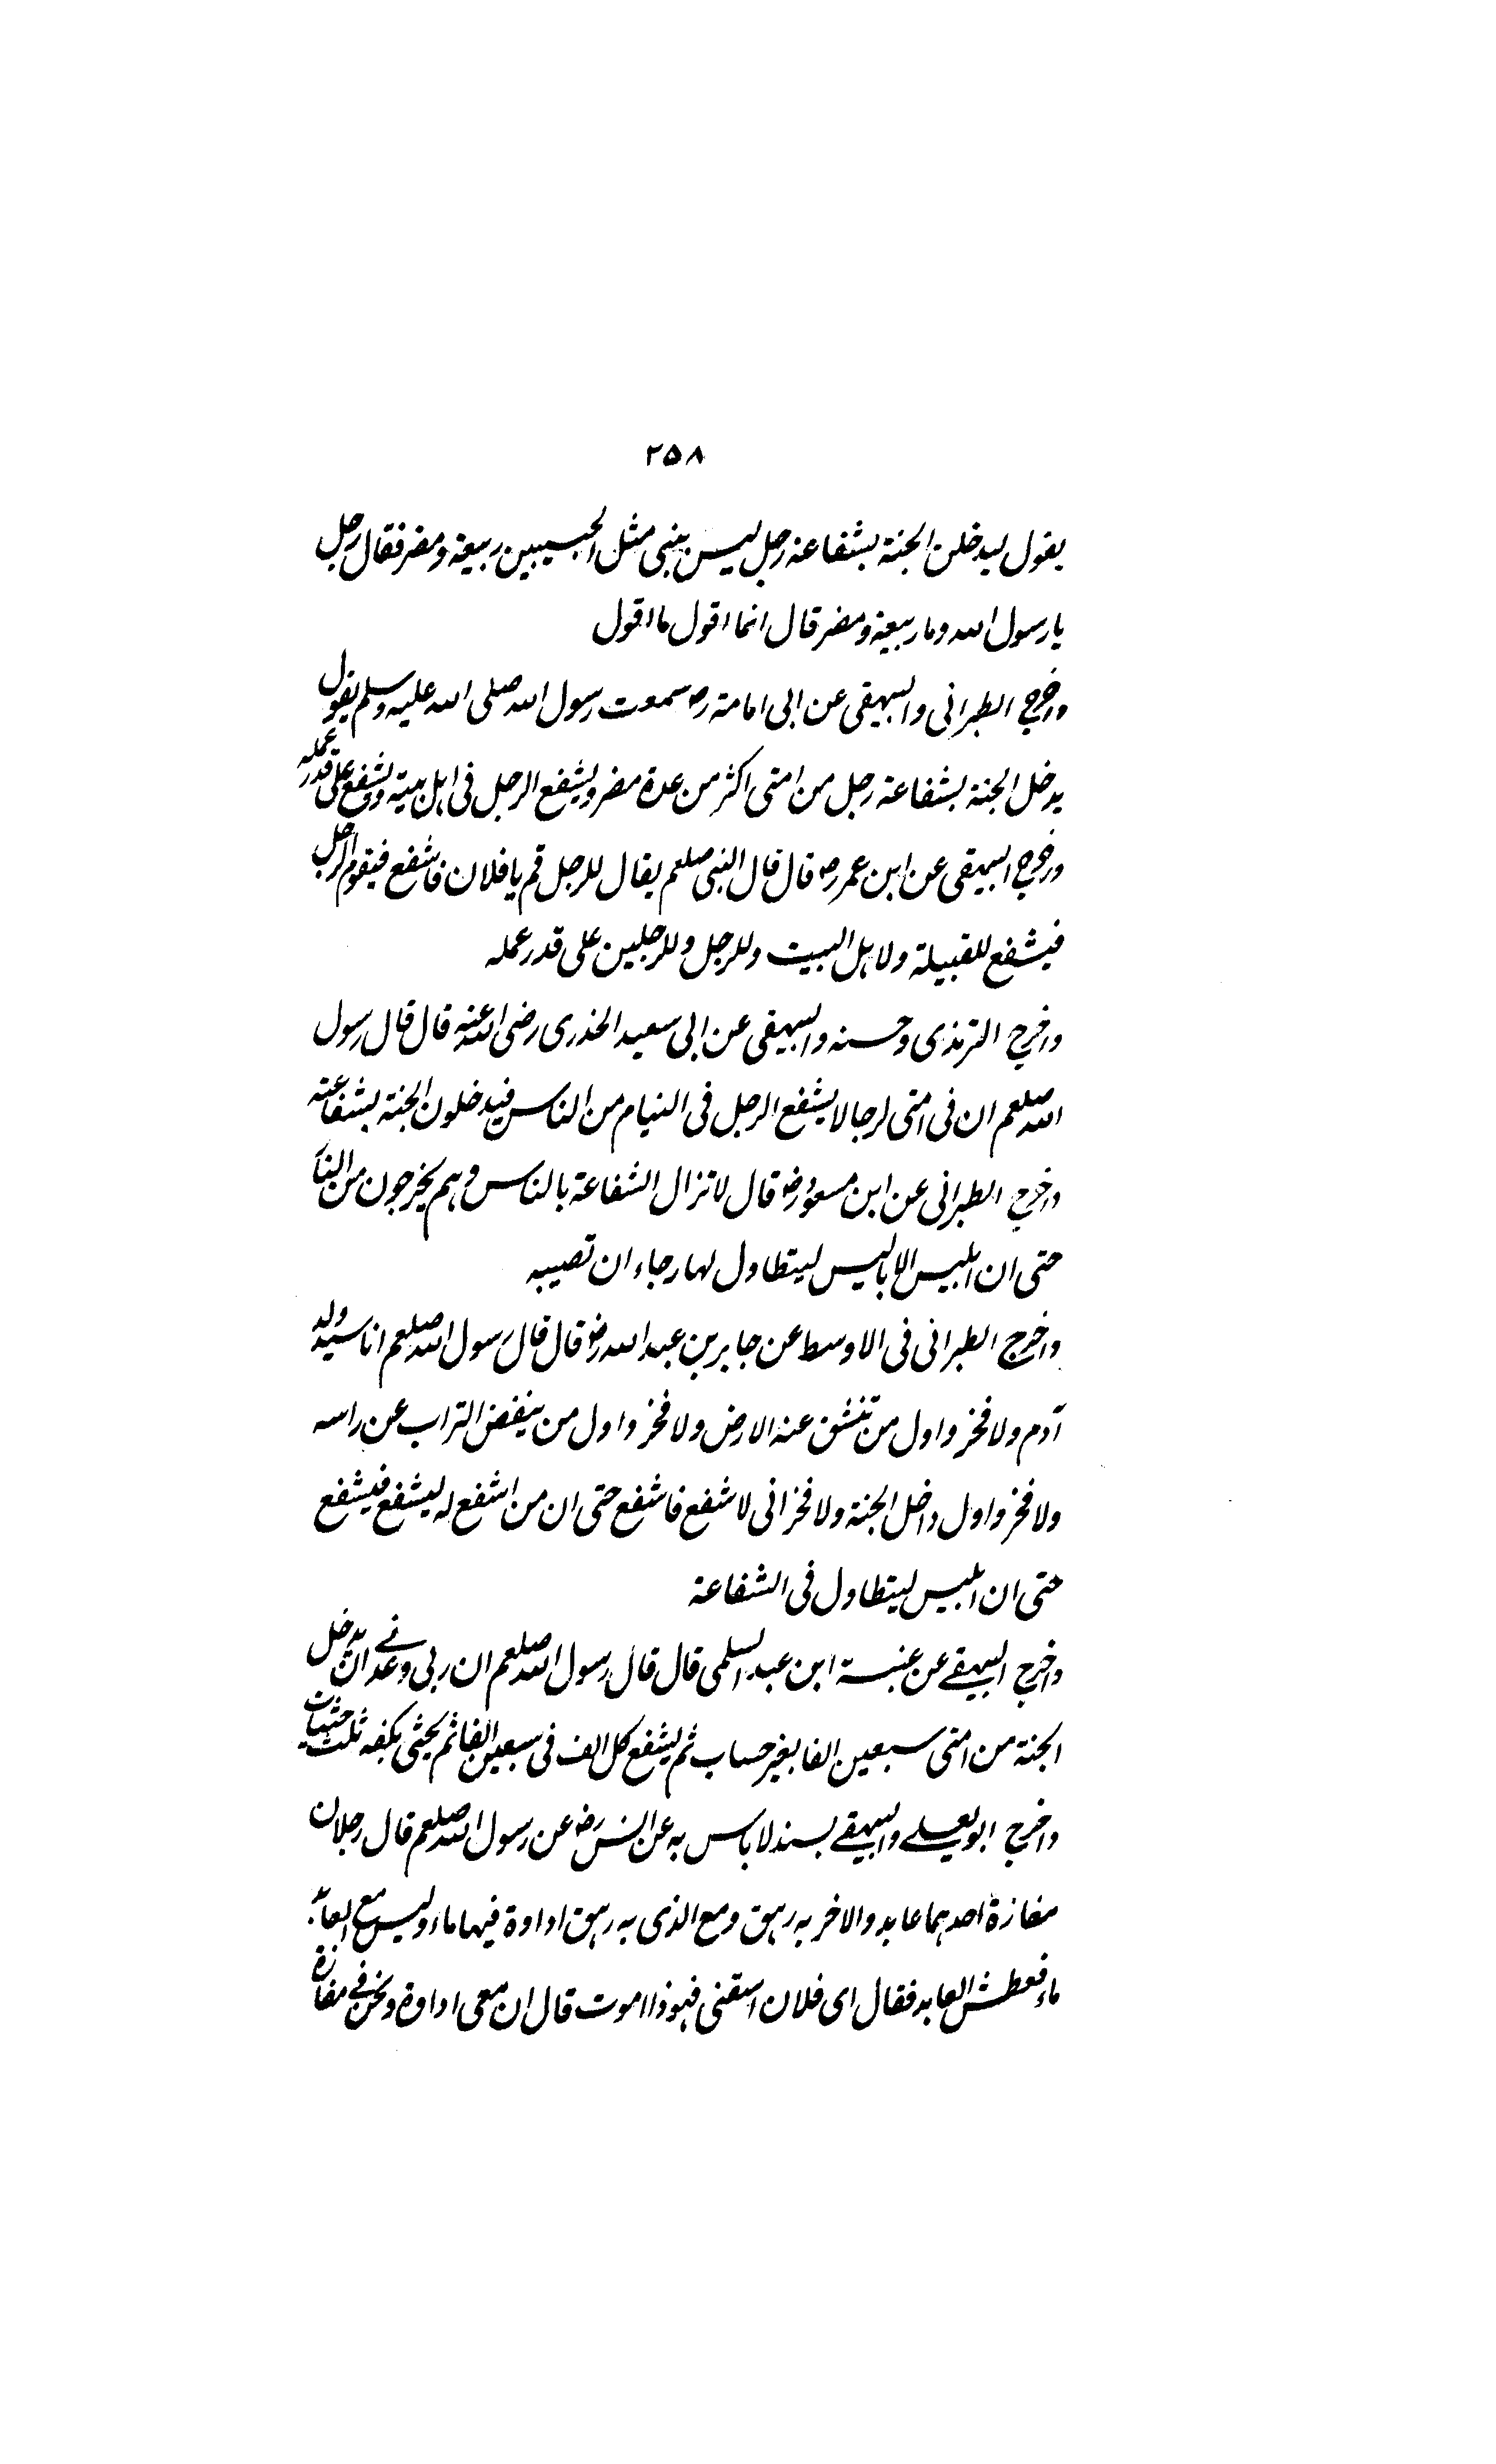 ۲۵۸
يقول ليدخلن الجنة بشفاعة رجل ليس بنبى مثل الحيين ربيعة ومضر فقال رجل
يا رسول الله وما ربيعة ومضر قال انما اقول ما اقول
واخرج الطبرانى والبيهقى عن ابى امامة رض سمعت رسول الله صلى الله عليه وسلم يقول
يدخل الجنة بشفاعة رجل من امتى اكثر من عدة مضر ويشفع الرجل فى اهل بيته ويشفع على قدر عمله
واخرج البيهقى عن ابن عمر رض قال قال النبى صلعم يقال للرجل قم يا فلان فاشفع فيقوم الرجل
فيشفع للقبيلة ولاهل البيت وللرجل وللرجلين على قدر عمله
واخرج الترمذى وحسنه والبيهقى عن ابى سعيد الخذرى رضى الله عنه قال قال رسول
الله صلعم ان فى امتى لرجالا يشفع الرجل فى الفيام من الناس فيدخلون الجنة بشفاعته
واخرج الطبرانى عن ابن مسعود رض قال لا تزال الشفاعة بالناس وهم يخرجون من النار
حتى ان ابليس الاباليس ليتطاول لها رجاء ان تصيبه
واخرج الطبرانى فى الاوسط عن جابر بن عبد الله رض قال قال رسول الله صلعم انا سيد ولد
آدم ولا فخر واول من تنشق عنه الارض ولا فخر واول من ينفض التراب عن راسه
ولا فخر واول داخل الجنة ولا فخر انى لاشفع فاشفع حتى ان من اشفع له ليشفع فيشفع
حتى ان ابليس ليتطاول فى الشفاعة
واخرج البيهقے عن عنبسة ابن عبد السلمى قال قال رسول الله صلعم ان ربى وعدنے ان يدخل
الجنة من امتى سبعين الفا بغير حساب ثم يشفع كل الف فى سبعين الفا ثم يحثى بكفه ثلث حثيات
واخرج ابو يعلے والبيهقے بسند لا باس به عن انس رض عن رسول الله صلعم قال رجلان
مفازة احدهما عابد والاخر به رهق ومع الذى به رهق اداوة فيها ماء وليس مع العابد
ماء فعطش العابد فقال اى فلان اسقنى فهوذا اموت قال ان معى اداوة ونحن فے مفازة